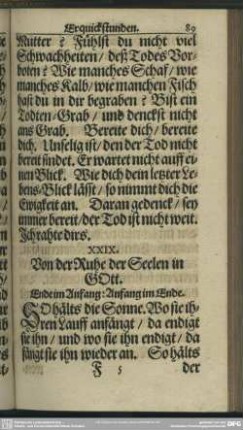 Erquickstunden. 89
Mutter? Fühlst du nicht viel
Schwachheiten/ deß Todes Vor-
boten? Wie manches Schaf/ wie
manches Kalb/ wie manchen Fisch
hast du in dir begraben? Bist ein
Todten-Grab/ und denckst nicht
ans Grab. Bereite dich/ bereite
dich. Unselig ist/ den der Tod nicht
bereit findet. Er wartet nicht auff ei-
nen Blick. Wie dich dein letzter Le-
bens-Blick lässt/ so nimmt dich die
Ewigkeit an. Daran gedenck/ sey
immer bereit/ der Tod ist nicht weit.
Ich rahte dirs.
XXIX.
Von der Ruhe der Seelen in
GOtt.
Ende im Anfang: Anfang im Ende.
SO hälts die Sonne. Wo sie ih-
ren Lauff anfängt/ da endigt
sie ihn/ und wo sie ihn endigt/ da
fängt sie ihn wieder an. So hälts
F 5 der